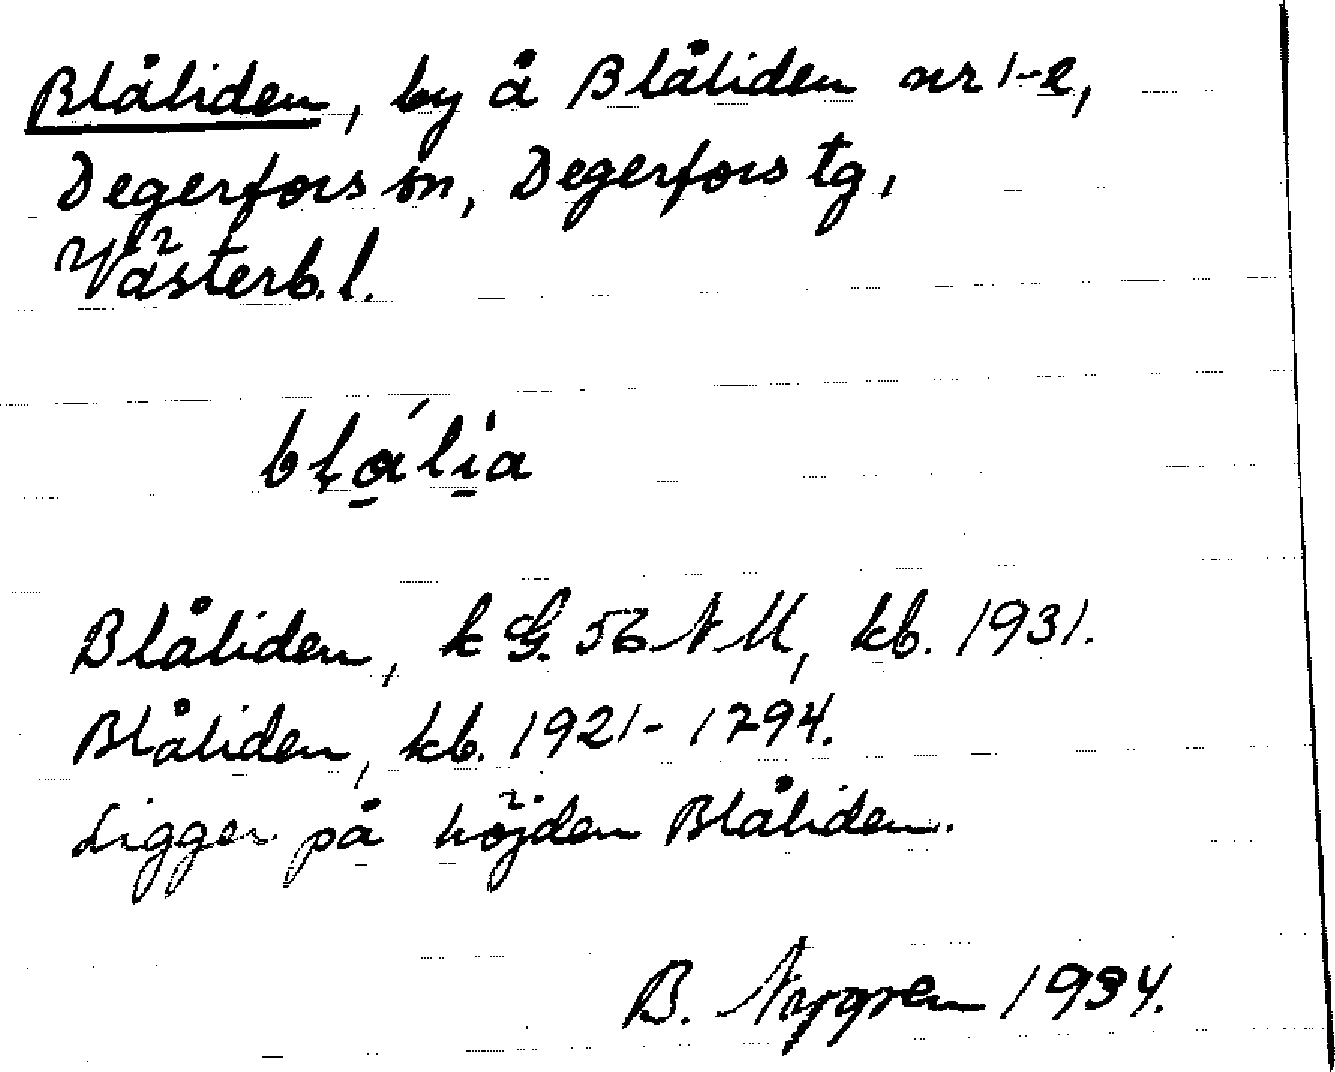 Blåliden, by å Blåliden nr 1-2,
Degerfors sn, Degerfors tg,
Västerb. l.
blália
Blåliden, k G. 56 NV, kb. 1931.
Blåliden, kb. 1921-1794.
Ligger på höjden Blåliden.
B. Nygren 1934.